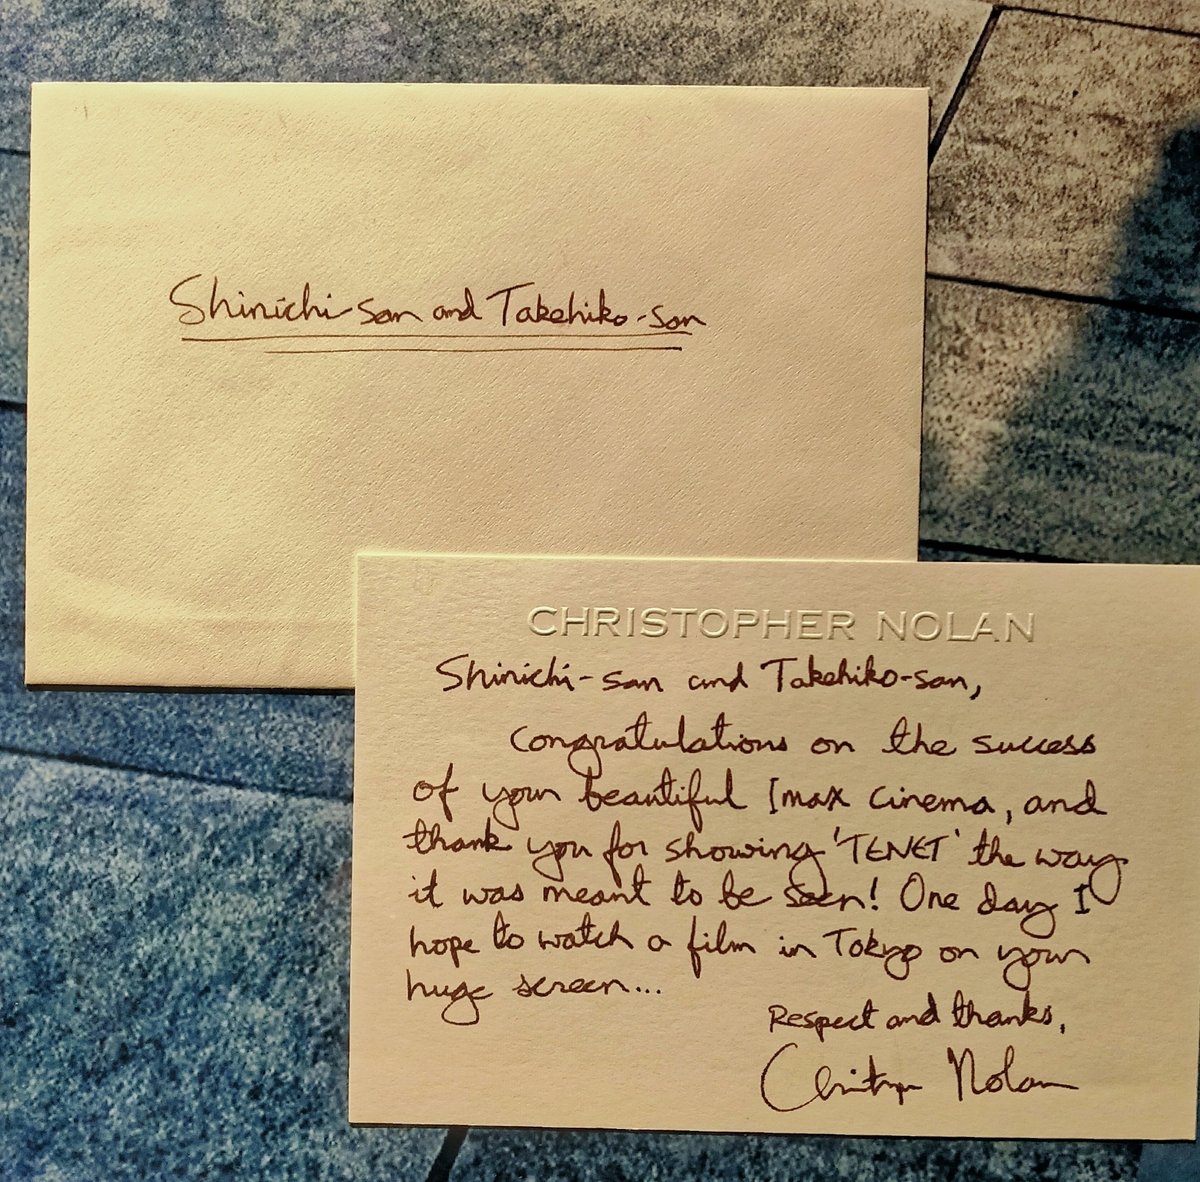 Shinichi-san and Takehiko-san
CHRISTOPHER NOLAN
Shinichi-san and Takehiko-san,
Congratulations on the success
of your beautiful Imax cinema, and
thank you for showing 'TENET' the way
it was meant to be seen! One day I
hope to watch a film in Tokyo on your
huge screen...
Respect and thanks,
Christopher Nolan